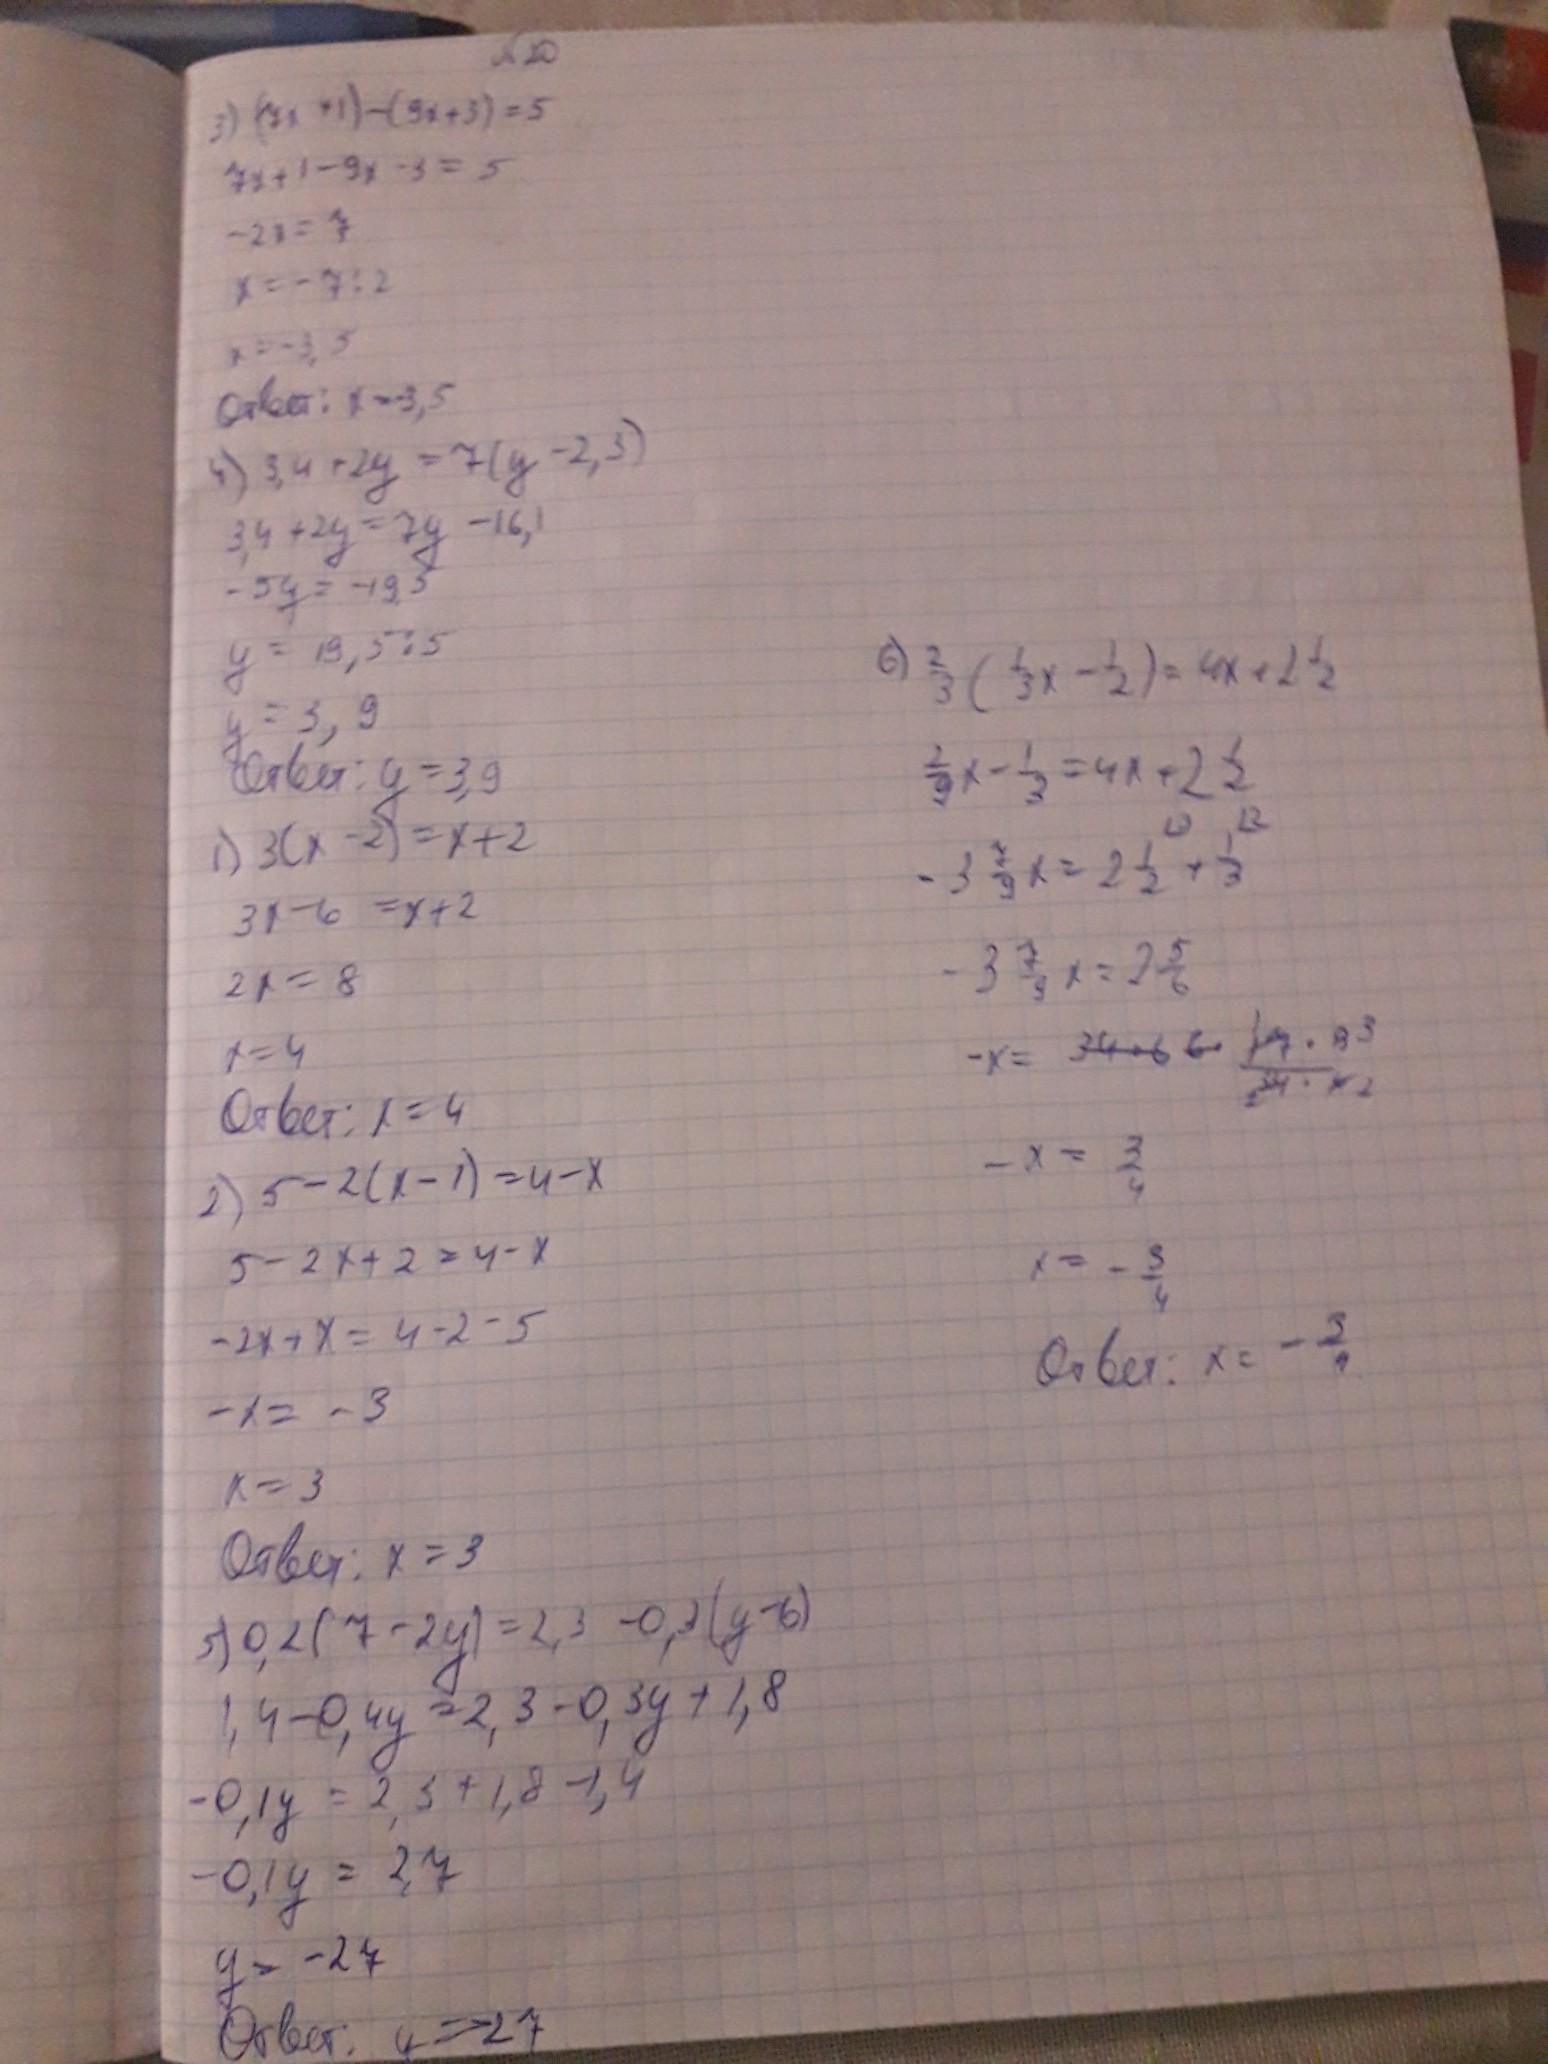 №20
3) (7x+1)-(9x+3)=5
7x+1-9x-3=5
-2x=7
x=-7:2
x=-3,5
Ответ: x=-3,5
4) 3,4+2y=7(y-2,3)
3,4+2y=7y-16,1
-5y=-19,5
y=19,5:5
y=3,9
Ответ: y=3,9
1) 3(x-2)=x+2
3x-6=x+2
2x=8
x=4
Ответ: x=4
2) 5-2(x-1)=4-x
5-2x+2=4-x
-2x+x=4-2-5
-x=-3
x=3
Ответ: x=3
5) 0,2(7-2y)=2,3-0,3(y-6)
1,4-0,4y=2,3-0,3y+1,8
-0,1y=2,3+1,8-1,4
-0,1y=2,7
y=-27
Ответ: y=-27
6) 2/3(1/3x-1/2)=4x+2 1/2
2/9x-1/3=4x+2 1/2
-3 7/9x=2 1/2+1/3
-3 7/9x=2 5/6
-x=
-x=3/4
x=-3/4
Ответ: x=-3/4